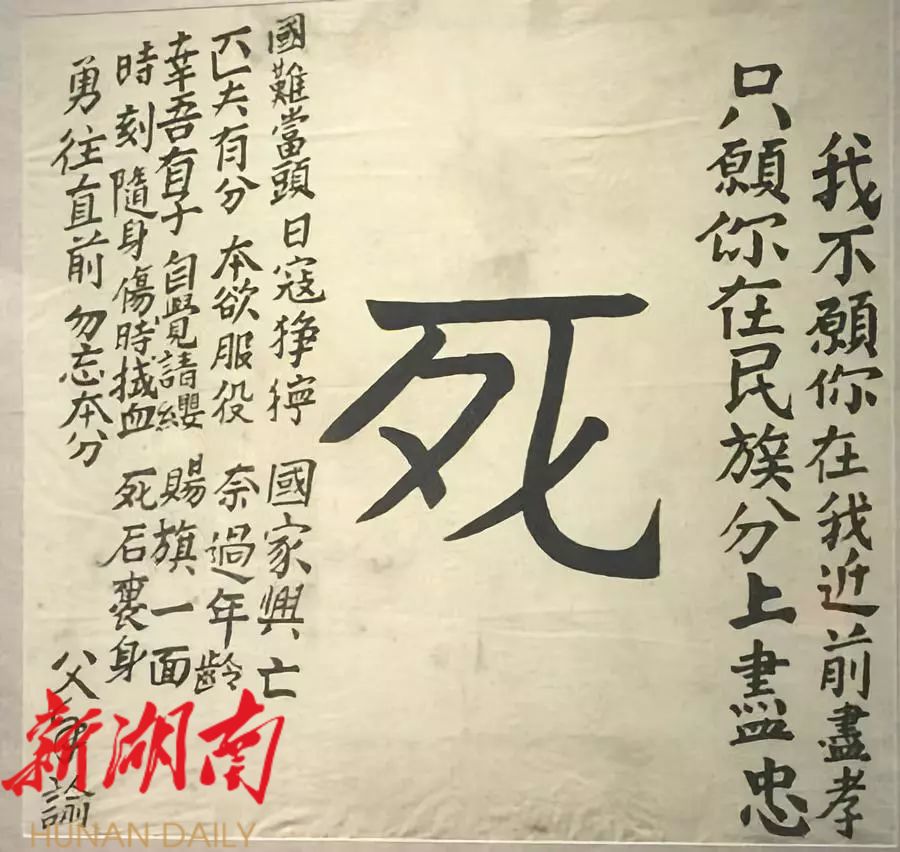 我不願你在我近前盡孝
只願你在民族分上盡忠
死
國難當頭 日寇猙獰 國家興亡
匹夫有分 本欲服役 奈過年齡
幸吾有子 自覺請纓 賜旗一面
時刻隨身 傷時拭血 死后裹身
勇往直前 勿忘本分
父諭
新湖南
HUNAN DAILY